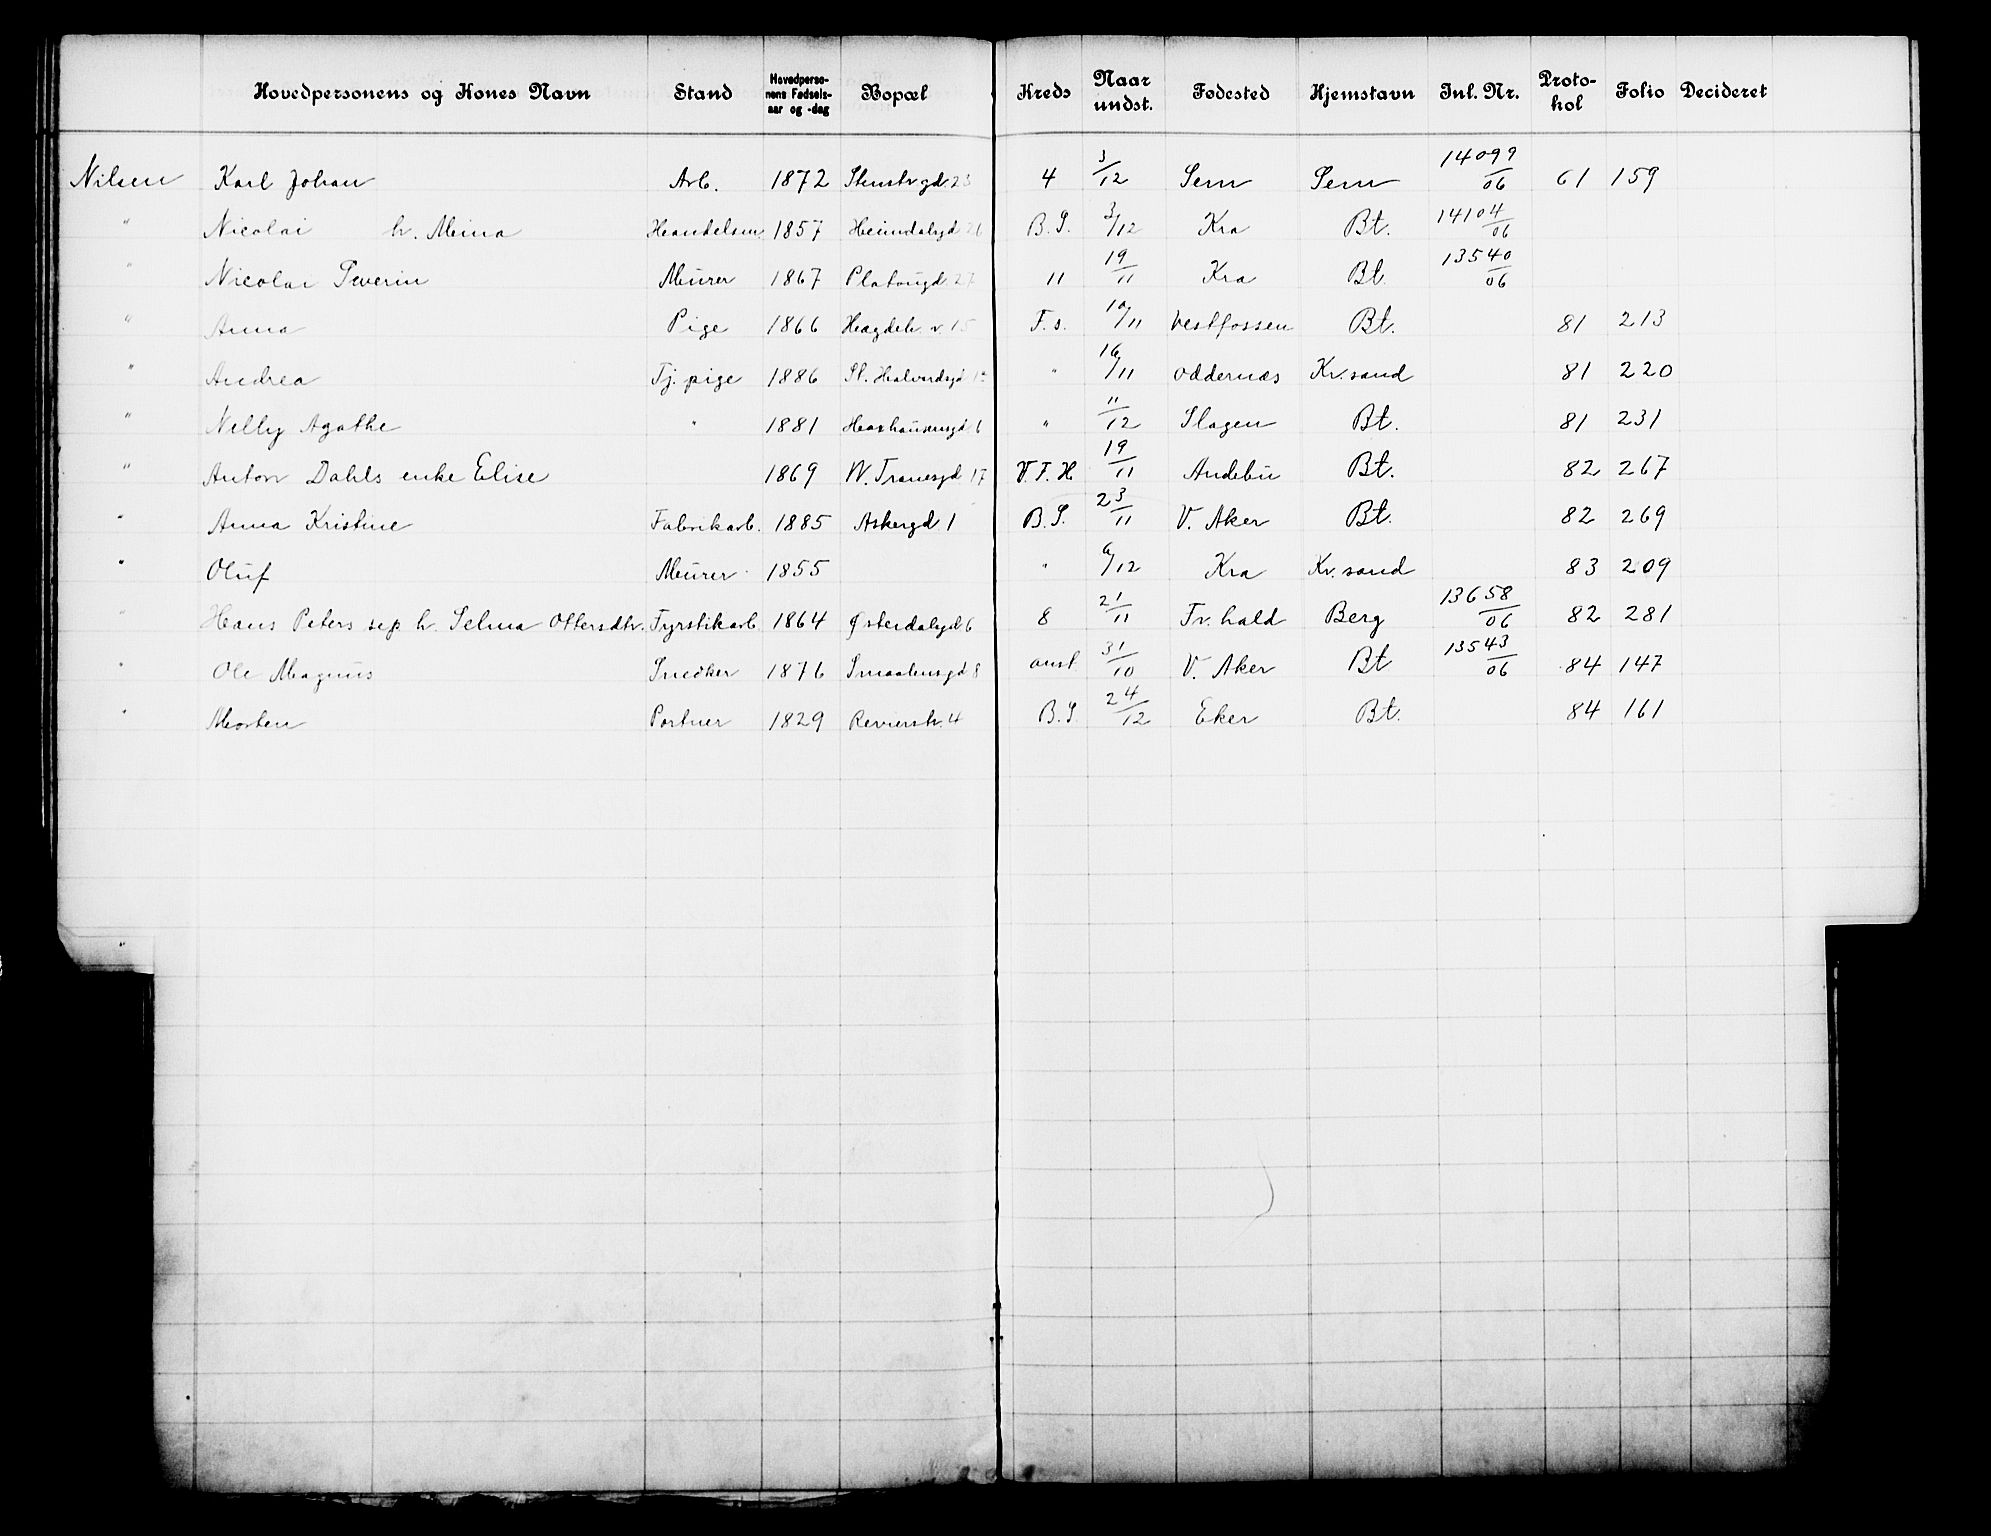 Hovedpersonens og Kones Navn Stand Hovedperso-nens Fødsels-aar og -dag Bopæl Kreds Naar undst. Fødested Hjemstavn Inl. Nr. Proto-kol Folio Decideret
Nilsen Karl Johan Arb. 1872 Stenstr gd. 23 4 3/12 Sem Sem 14099/06 61 159
" Nicolai h. Mina Handelsm. 1857 Heimdalsgd 26 B.S. 3/12 Kra Bt. 14104/06
" Nicolai Severin Murer 1867 Platougd. 27 11 19/11 Kra Bt. 13540/06
" Anna Pige 1866 Hægdeh. v. 15 F.s. 10/11 Vestfossen Bt. 81 213
" Andrea Tj. pige 1886 St. Halvardsgd " 16/11 Oddernæs Kr.sand 81 220
" Nelly Agathe " 1881 Haxthausensgd 6 " 11/12 Slagen Bt. 81 231
" Anton Dahls enke Elise 1869 W. Tranesgd 17 V.F.H 19/11 Andebu Bt. 82 267
" Anna Kristine Fabrikarb. 1885 Askergd 1 B.S. 23/11 V. Aker Bt. 82 269
" Oluf Murer 1855 " 6/12 Kra Kr. sand 83 209
" Hans Peters sep. h. Selma Ottersdtr. Fyrstikarb. 1864 Østerdalsgd 6 8 21/11 Fr. hald Berg 13658/06 82 281
" Ole Magnus Snedker 1876 Smaalensgd 8 anst. 31/10 V. Aker Bt 13543/06 84 147
" Morten Portner 1829 Revierstr. 4 B.S. 24/12 Eker Bt. 84 161
"